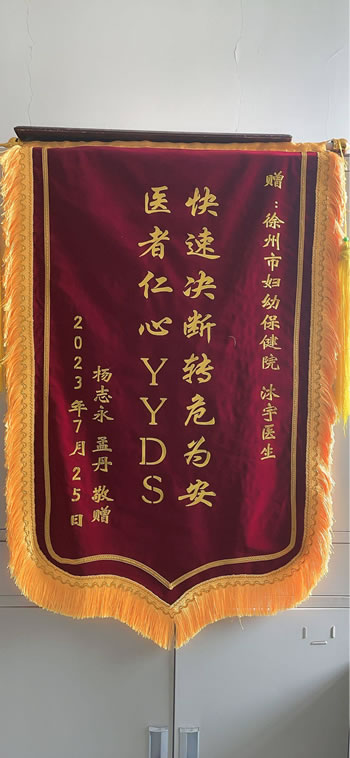 赠：徐州市妇幼保健院 沐宇医生
快速决断转危为安
医者仁心YYDS
杨志永 孟丹 敬赠
2023年7月25日